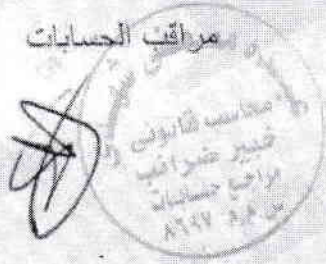 مراقب الحسابات
محاسب قانونى
خبير ضرائب
مراجع حسابات
س.م.م ٨٦٩٧